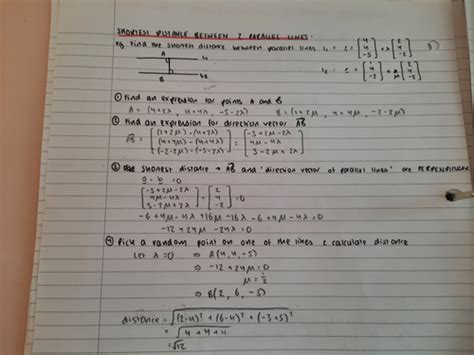 SHORTEST DISTANCE BETWEEN 2 PARALLEL LINES:
eg Find the shortest distance between parallel lines l₁ = r = [4 4 -5] + λ [2 4 -2]
A l₁
l₂ : r = [1 4 -2] + μ [2 4 -2]
B l₂
① Find an expression for points A and B
A = (4+2λ, 4+4λ, -5-2λ) B = (1+2μ, 4+4μ, -2-2μ)
② Find an expression for direction vector AB
AB = [(1+2μ)-(4+2λ) (4+4μ)-(4+4λ) (-2-2μ)-(-5-2λ)] = [-3+2μ-2λ 4μ-4λ 3-2μ+2λ]
③ Use shortest distance → AB and "direction vector of parallel lines" are PERPENDICULAR
a . b = 0
[-3+2μ-2λ 4μ-4λ 3-2μ+2λ] . [2 4 -2] = 0
-6+4μ-4λ+16μ-16λ-6+4μ-4λ=0
-12+24μ-24λ=0
④ Pick a random point on one of the lines & calculate distance
Let λ=0 ⇒ A(4,4,-5)
⇒ -12+24μ=0
μ=½
⇒ B(2, 6, -3)
distance = √(2-4)²+(6-4)²+(-3+5)²
= √4+4+4
= √12